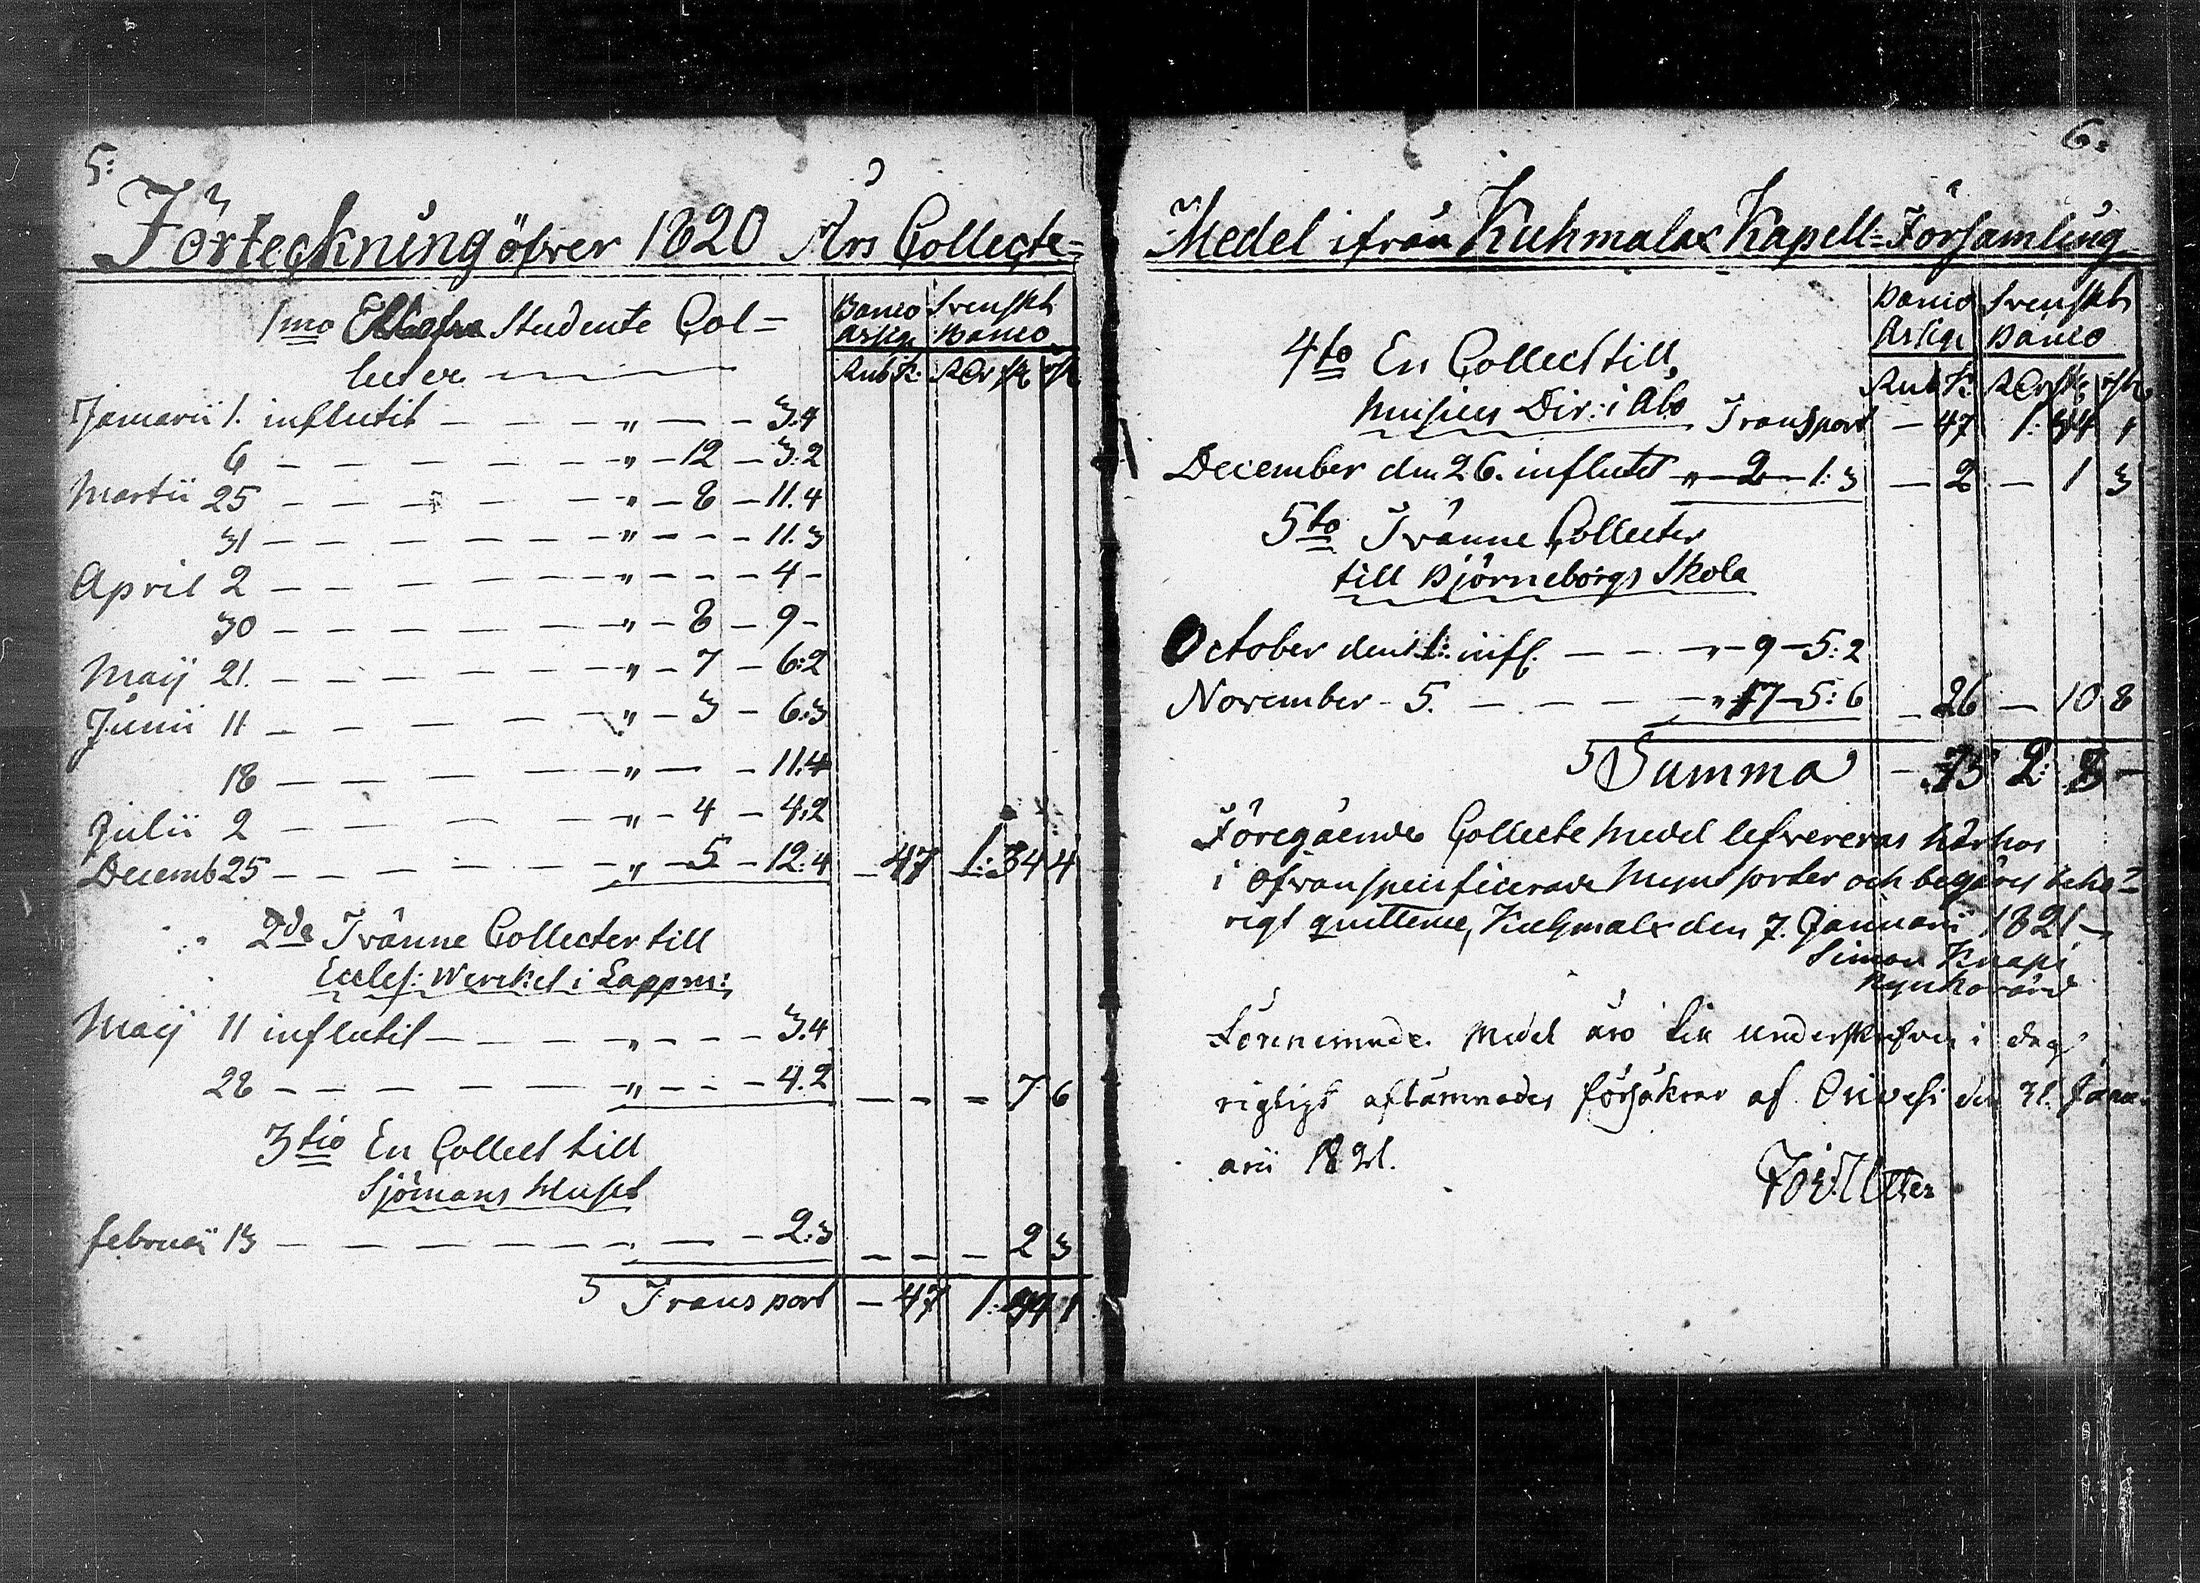 5:
Förteckning öfver 1820 Års Collecte=
1mo Ellofva Studente Col=
lecter
Banco Assign. Svenskt Banco
Rub K. RDr sk. rst.
Januarii 1. influtit — — „ — — 3.4
6 — — — „ — 12 — 3:2
Martii 25 — — — „ — 8 — 11.4
31 — — — „ — — — 11.3
April 2 — — — „ — — — 4 —
30 — — — „ — 8 — 9 —
Maij 21. — — — „ — 7 — 6:2
Junii 11 — — — „ — 3 — 6:3
18 — — — „ — — 11.4
Julii 2 — — — „ — 4 — 4,2
Decemb 25 — — — „ — 5 — 12:4 — 47 1: 34 4
2do Tvänne Collecter till
Eccles: Werket i Lappm:
Maij 11 influtit — — — „ — — — 3.4
28 — — — „ — — — 4.2 — — — 7 6
3tio En Collect till
Sjömans Huset
Februarii 13 — — — — 2:3 — — — 2 3
Transport — 47 1: 44 1
6:
Medel ifrån Kuhmalax Kapell=Församling
Banco Assign. Svenskt Banco
Rub K. RDr sk. rst.
4to En Collect till
Musices Dir: i Åbo Transport — 47 1: 44 1
December den 26. influtit „ — 2 — 1:3 — 2 — 1 3
5to Tvänne Collecter
till Björneborgs Skola
October den 1: infl. — — „ — 9 — 5:2
November — 5. — — — „ 17 — 5:6 — 26 — 10 8
Summa — 75 2: 8 —
Föregående Collecte Medel lefvereras härhos
i ofvanspecificerade Myntsorter och begäres behö=
rigt quittence, Kuhmalax den 7. Januarii 1821 —
Simon Knapi
Kyrkovärd
Förenämnde Medel äro till underskrefven i dag
rigtigt aflämnades försäkrar af Orivesi den 31. Janu=
arii 1821.